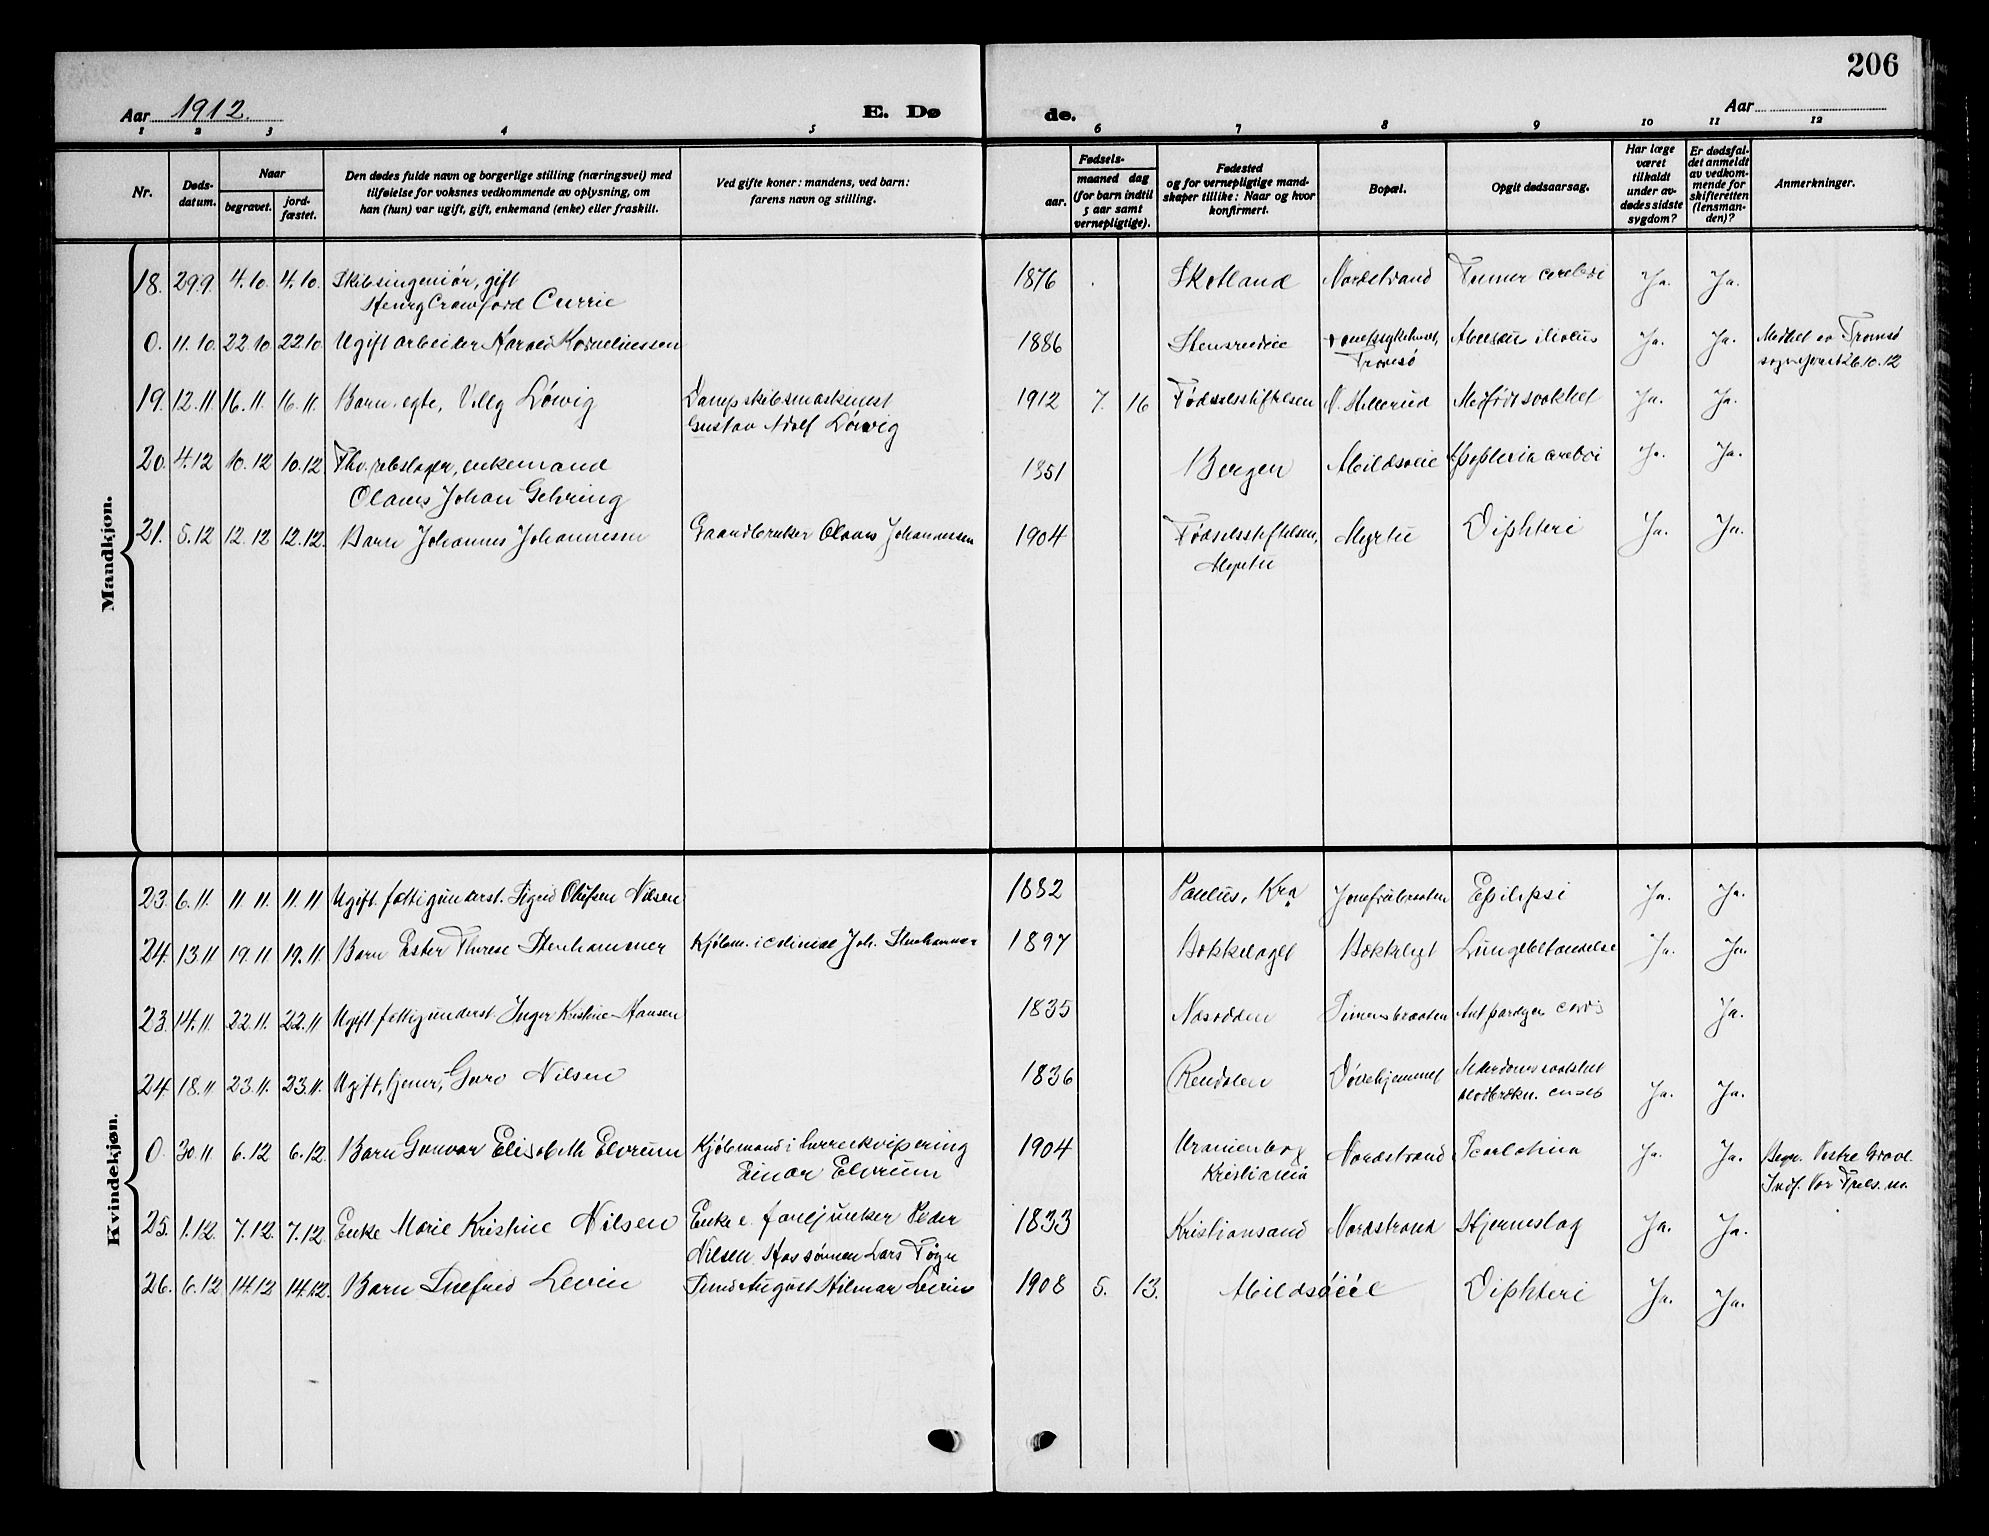 206
Aar 1912.
E. Døde.
Aar
1 2 3 4 5 6 7 8 9 10 11 12
Nr.
Døds-
datum.
Naar
begravet.
jord-
fæstet.
Den dødes fulde navn og borgerlige stilling (næringsvei) med
tilføielse for voksnes vedkommende av oplysning, om
han (hun) var ugift, gift, enkemand (enke) eller fraskilt.
Ved gifte koner: mandens, ved barn:
farens navn og stilling.
Fødsels-
aar.
maaned dag
(for barn indtil
5 aar samt
vernepligtige).
Fødested
og for vernepligtige mand-
skaper tillike: Naar og hvor
konfirmert.
Bopæl.
Opgit dødsaarsag.
Har læge
været
tilkaldt
under av-
dødes sidste
sygdom?
Er dødsfal-
det anmeldt
av vedkom-
mende for
skifteretten
(lensman-
den)?
Anmerkninger.
Mandkjøn.
18. 29.9. 4.10. 4.10. Skibsingeniør, gift 1876 Skotland Nordstrand Tumor cerebri Ja. Ja.
Henry Crawford Currie
0. 11.10. 22.10 22.10. Ugift arbeider Kornelinessen 1886 Ja. Ja. Tromsø
Tromsø 26.10.12
19. 12.11. 16.11. 16.11. Barn, egte, Villy Löwig Dampskibsmaskinist 1912 7. 16 Fødselsstiftelsen N. Hellerud Medfødt svakhet Ja. Ja.
Gustav Adolf Löwig
20. 4.12 10.12 10.12 enkemand 1851 Bergen Apoplexia cerebri Ja. Ja.
Olaus Johan Gehring
21. 5.12 12.12 12.12. Barn Johannes Johannesen Gaardbruker Olaus Johannesen 1904 Fødselsstiftelsen, Diphteri Ja. Ja.
Kvindekjøn.
23. 6.11. 11.11. 11.11 Ugift fattigunderst. Sigrid Olufine Nilsen 1882 Paulus, Kra Epilepsi Ja. Ja.
24. 13.11 19.11. 19.11. Barn Ester Therese Stenhammer Kjøbm. Joh. Stenhammer 1897 Bekkelaget Bekkelaget Lungebetændelse Ja. Ja.
23. 14.11. 22.11. 22.11 Ugift fattigunderst. Inger Kristine Hansen 1835 Næsodden Simensbraaten cordis Ja.
24. 18.11 23.11. 23.11. Ugift, Guro Nilsen 1836 Rendalen Døvehjemmet Alderdomssvakhet Ja. Ja.
0. 30.11. 6.12 6.12. Barn Gunvor Elisabeth Elvrum Kjøbmand i herreekvipering 1904 Uranienborg Nordstrand Scarlatina Ja. Ja. Begr. Vestre Gravl.
Einar Elvrum Kristiania Indf. Vor Frels. m.
25. 1.12. 7.12. 7.12. Enke Marie Kristine Nilsen Enke e. fanejunker Peder 1833 Kristiansand Nordstrand Hjerneslag Ja. Ja.
Nilsen. Hos sønnen Lars
26. 6.12 14.12 14.12. Barn Levin August Hilmar Levin 1908 5. 13. Diphteri Ja. Ja.